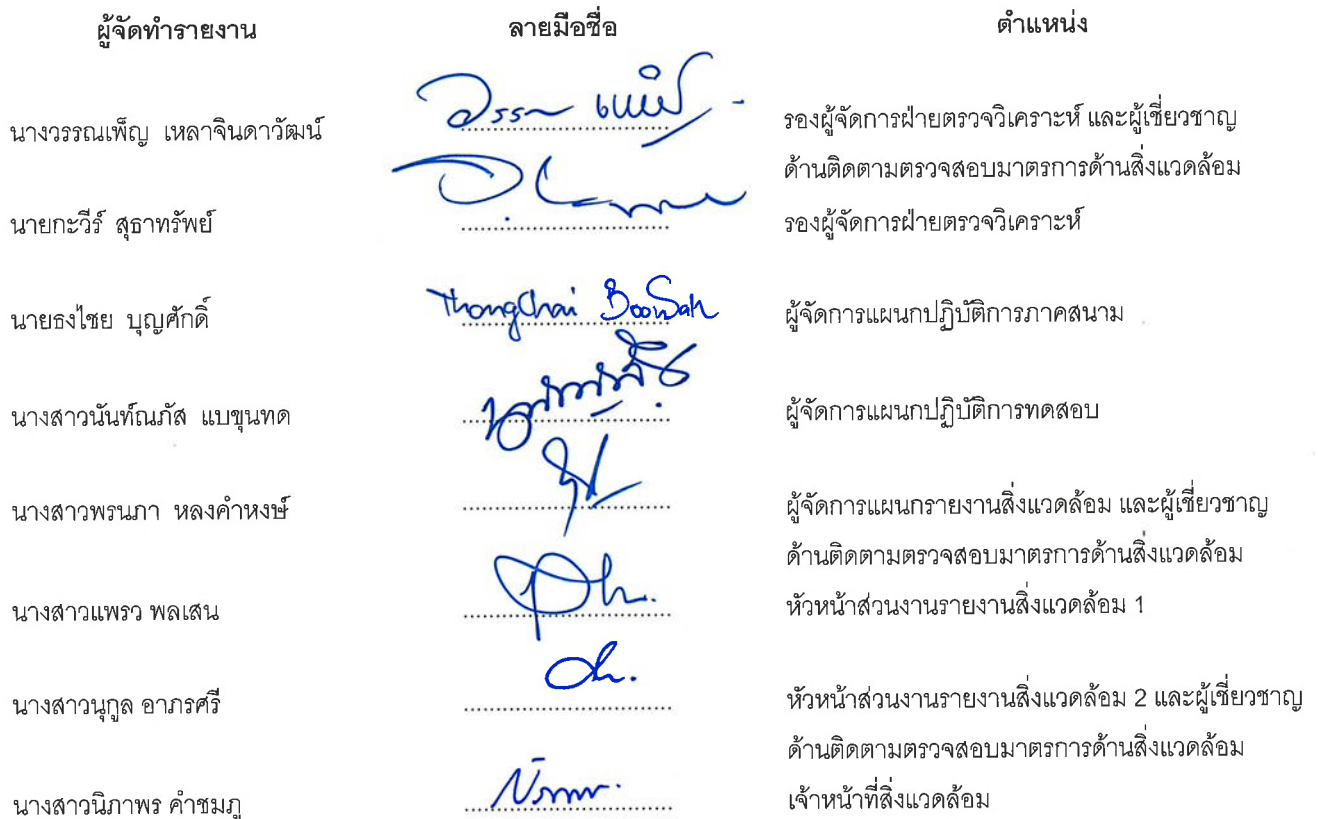 ผู้จัดทำรายงาน ลายมือชื่อ ตำแหน่ง
นางวรรณเพ็ญ เหลาจินดาวัฒน์ รองผู้จัดการฝ่ายตรวจวิเคราะห์ และผู้เชี่ยวชาญ
ด้านติดตามตรวจสอบมาตรการด้านสิ่งแวดล้อม
นายกะวีร์ สุธาทรัพย์ รองผู้จัดการฝ่ายตรวจวิเคราะห์
นายธงไชย บุญศักดิ์ ThongChai BoonSak ผู้จัดการแผนกปฏิบัติการภาคสนาม
นางสาวนันท์ณภัส แบขุนทด ผู้จัดการแผนกปฏิบัติการทดสอบ
นางสาวพรนภา หลงคำหงษ์ ผู้จัดการแผนกรายงานสิ่งแวดล้อม และผู้เชี่ยวชาญ
ด้านติดตามตรวจสอบมาตรการด้านสิ่งแวดล้อม
นางสาวแพรว พลเสน หัวหน้าส่วนงานรายงานสิ่งแวดล้อม 1
นางสาวนุกูล อาภรศรี หัวหน้าส่วนงานรายงานสิ่งแวดล้อม 2 และผู้เชี่ยวชาญ
ด้านติดตามตรวจสอบมาตรการด้านสิ่งแวดล้อม
นางสาวนิภาพร คำชมภู เจ้าหน้าที่สิ่งแวดล้อม